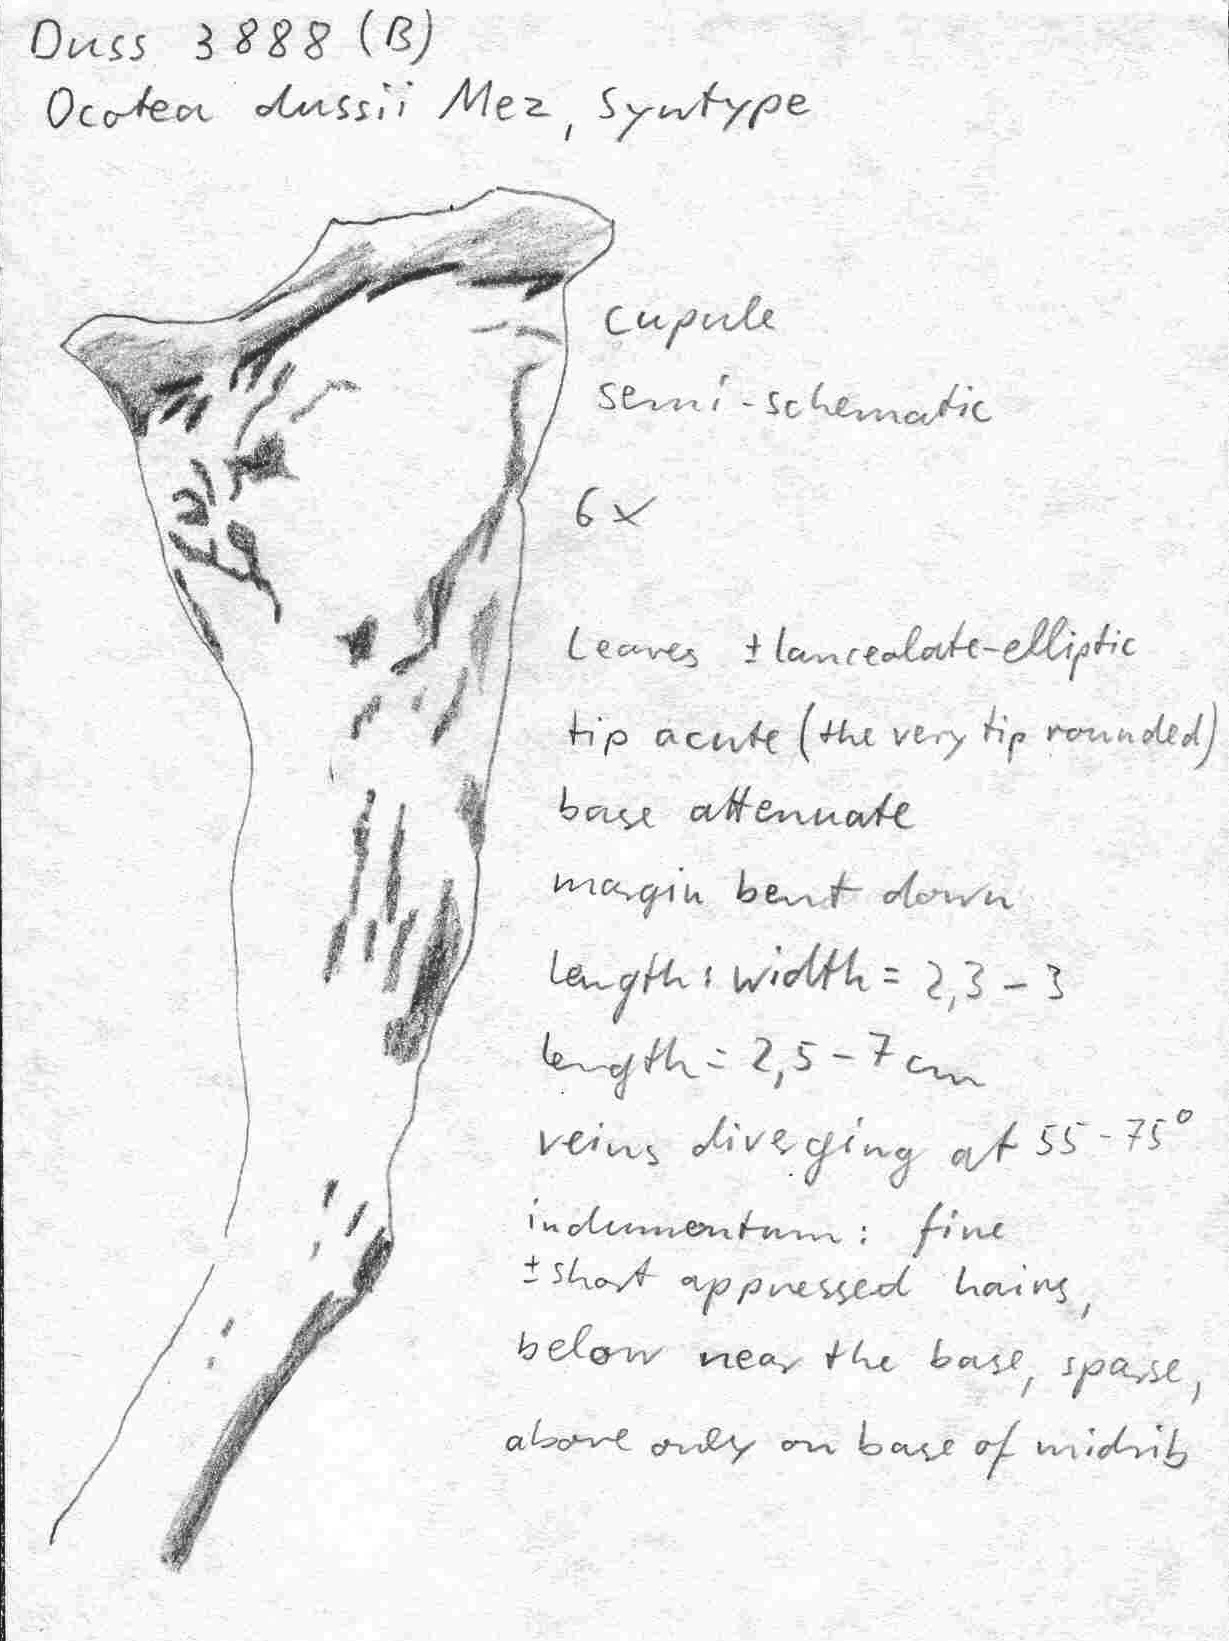 Duss 3888 (B)
Ocotea dussii Mez, Syntype
cupule
semi-schematic
6x
Leaves ± lanceolate-elliptic
tip acute (the very tip rounded)
base attenuate
margin bent down
length : width = 2,3 - 3
length = 2,5 - 7 cm
veins diverging at 55 - 75°
indumentum : fine
± short appressed hairs,
below near the base, sparse,
above only on base of midrib